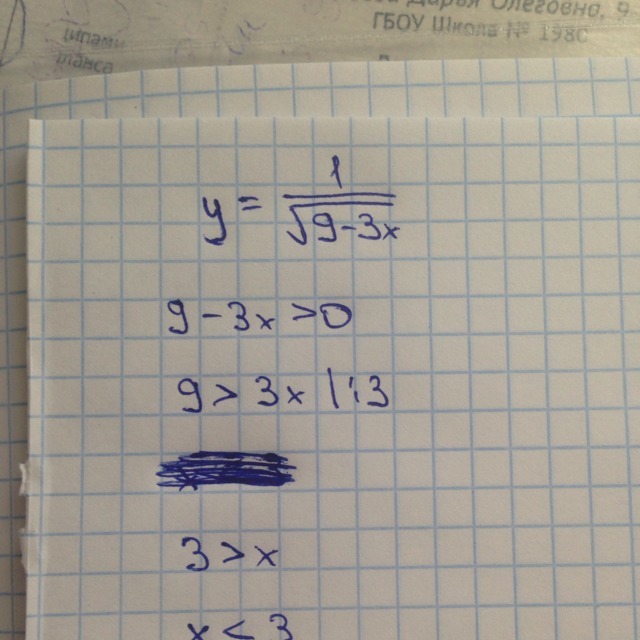 Дарья Олеговна, 9
ГБОУ Школа № 1980
y = 1/√(9-3x)
9 - 3x > 0
9 > 3x |:3
3 > x
x < 3